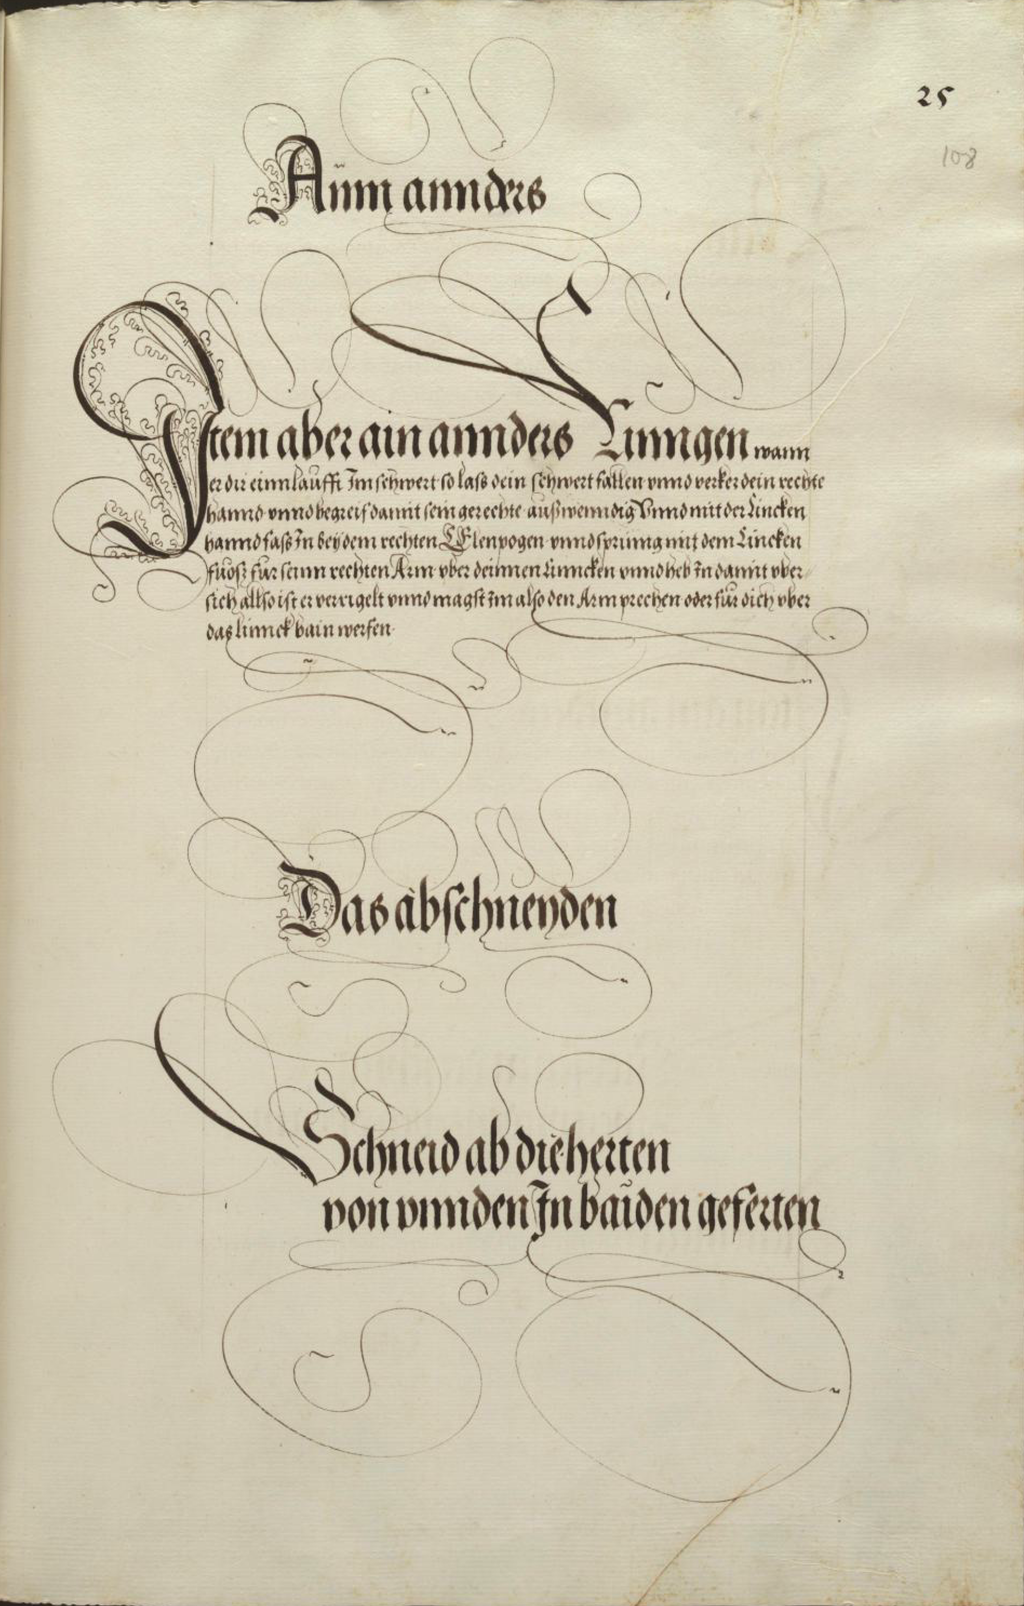 25
108
Ainn annders
Item aber ain annders Rinngen wann
er dir einnlaufft Im schwert so lass dein schwert fallen vnnd verker dein rechte
hannd vnnd begreif damit sein gerechte außwenndig Vnnd mit der Lincken
hannd fass In bey dem rechten Elenpogen vnnd spring mit dem Lincken
fuoß für seinn rechten Arm vber deinnen Linncken vnnd heb In damit vber
sich allso ist er verrigelt vnnd magst Im also den Arm prechen oder für dich vber
das linnck bain werfen
Das abschneyden
Schneid ab die herten
von vnnden In baiden geferten